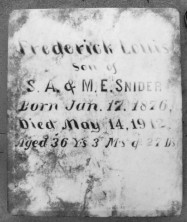 Frederick Louis
Son of
S. A. & M. E. SNIDER
Born Jan. 17, 1876,
Died May 14, 1912,
Aged 36 Ys 3 Ms & 27 Ds